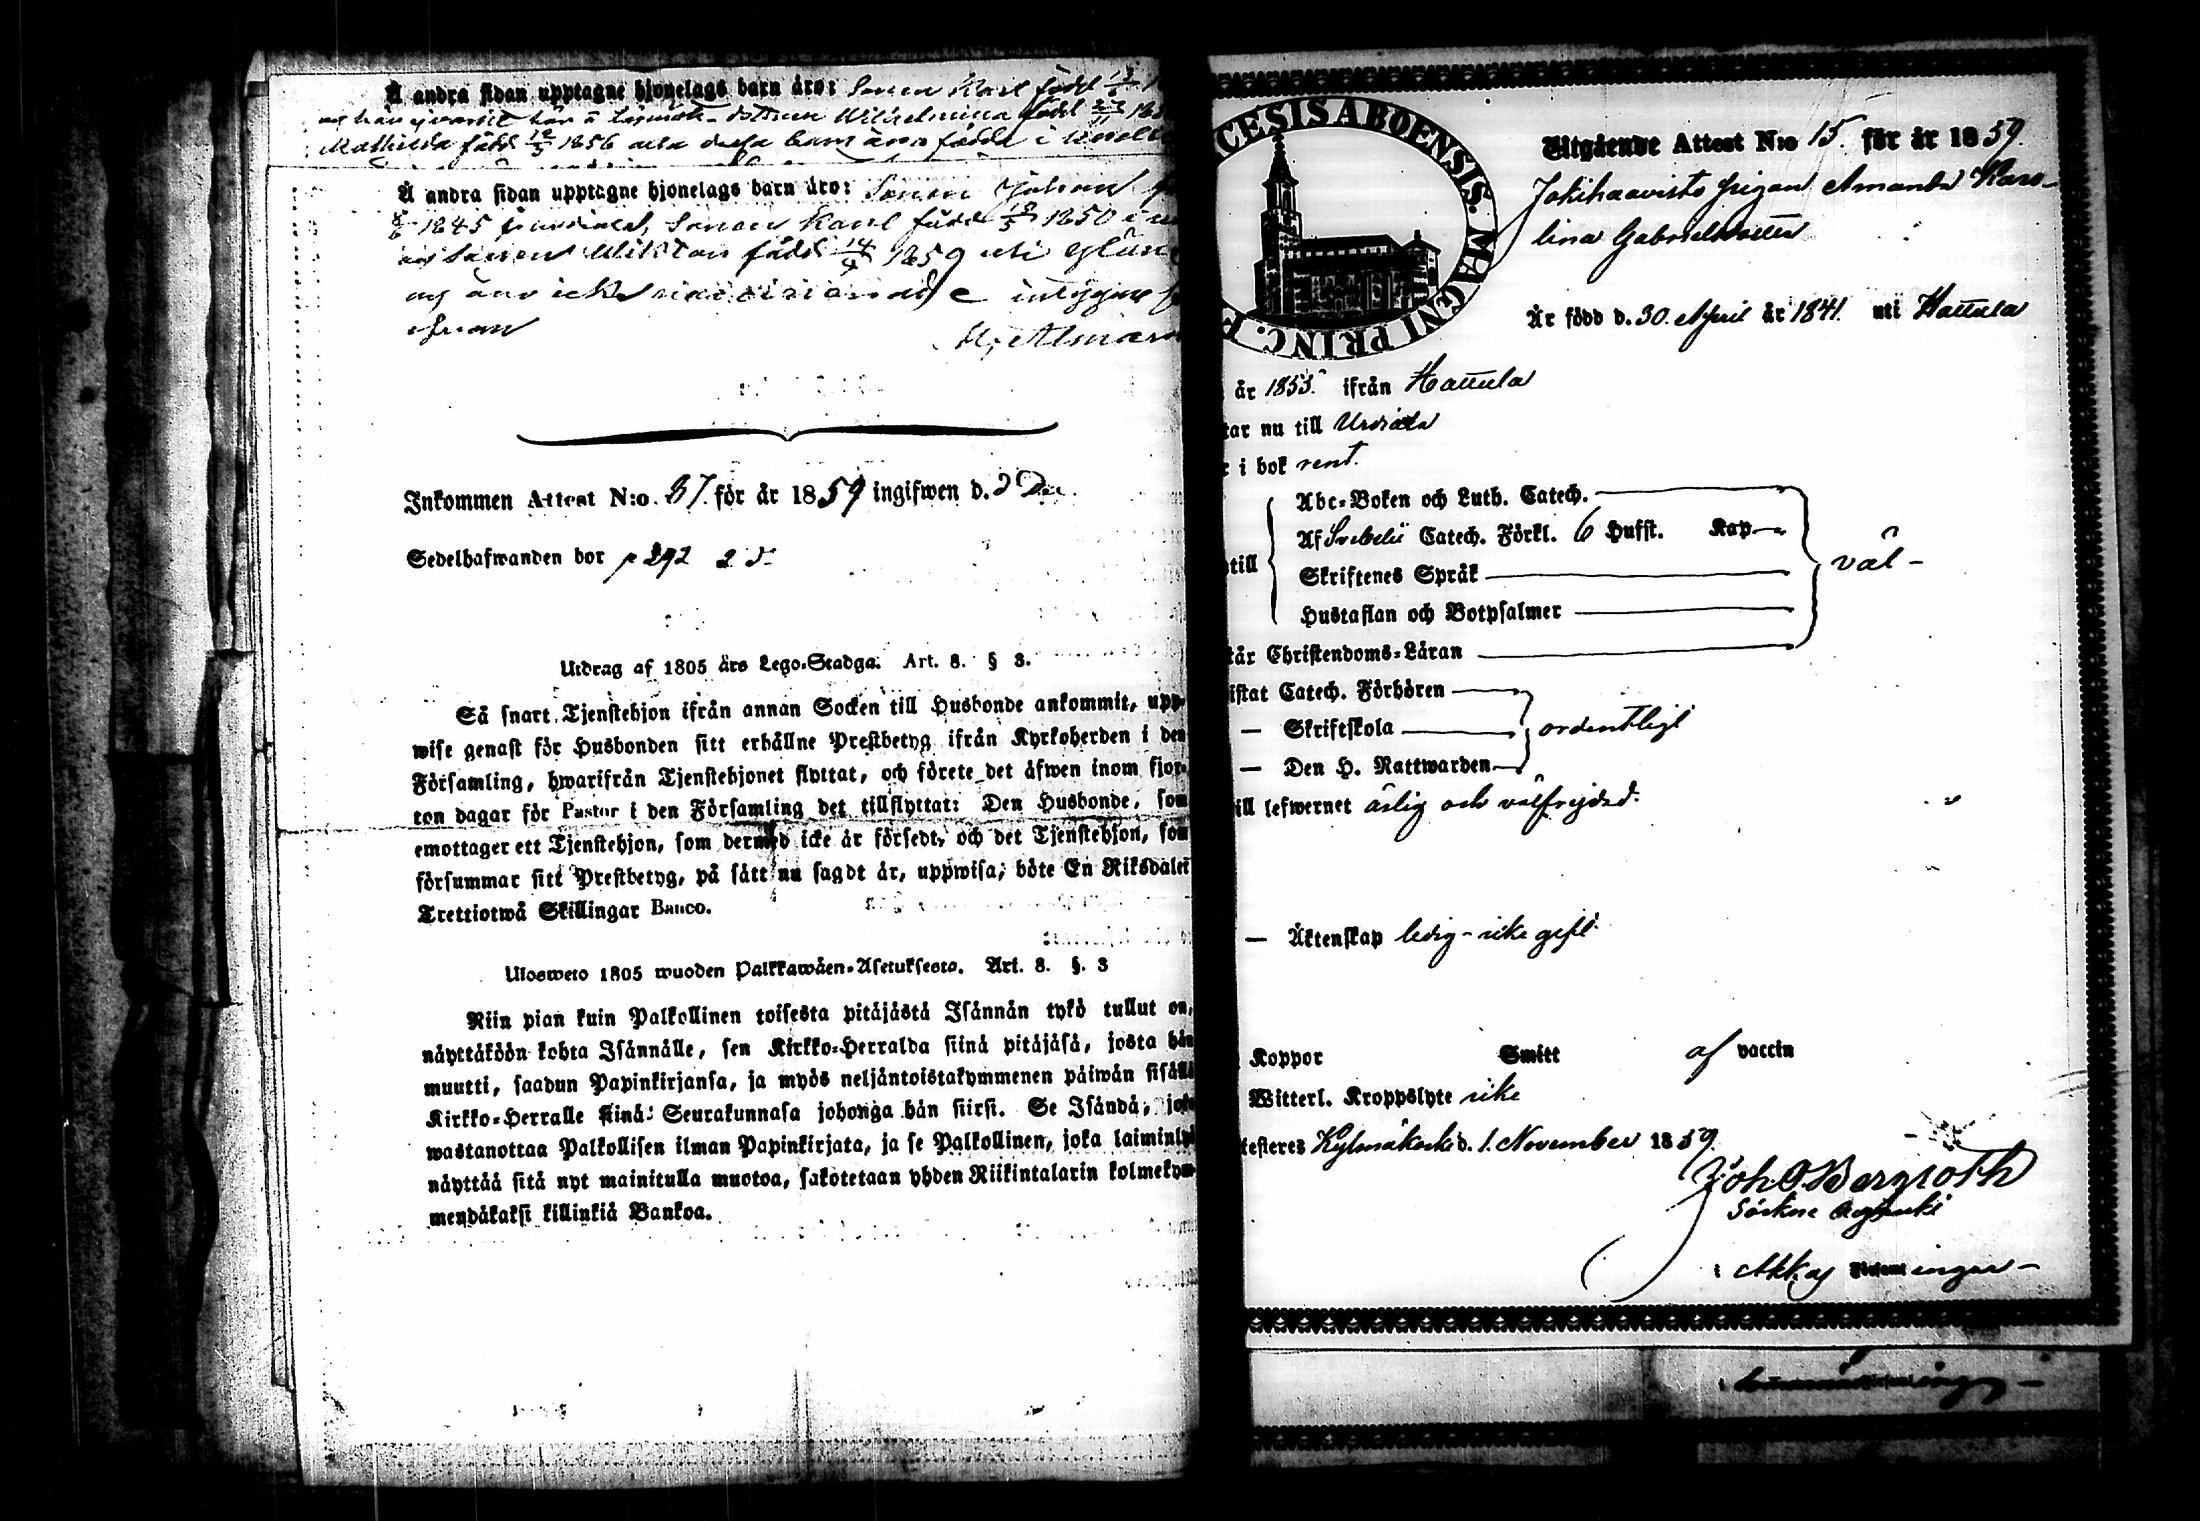 Å andra sidan upptagne hjonelags barn äro: Sonen Karl född
Mathilda född 12/3 1856 alla dessa barn äro födda i
Å andra sidan upptagne hjonelags barn äro: Sonen Johan
1845 Sonen Karl född 1850
Sonen Wiktor född 14/9 1859 uti
Inkommen Attest N:o 37. för år 1859 ingifwen d. 2 Dec.
Sedelhafwanden bor p 292
Utdrag af 1805 års Lego-Stadga. Art. 8. § 3.
Så snart Tjenstehjon ifrån annan Socken till Husbonde ankommit, upp-
wise genast för Husbonden sitt erhållne Prestbetyg ifrån Kyrkoherden i den
Församling, hwarifrån Tjenstehjonet flyttat, och förete det äfwen inom fjor-
ton dagar för Pastor i den Församling det tillflyttat: Den Husbonde, som
emottager ett Tjenstehjon, som dermed icke är försedt, och det Tjenstehjon, som
försummar sitt Prestbetyg, på sätt nu sagdt är, uppwisa, böte En Riksdaler
Trettiotwå Skillingar Banco.
Ulosweto 1805 wuoden Palkkawäen-Asetuksesta. Art. 8. §. 3
Niin pian kuin Palkollinen toisesta pitäjästä Isännän tykö tullut on,
näyttäköön kohta Isännälle, sen Kirkko-Herralda siinä pitäjäsä, josta hän
muutti, saadun Papinkirjansa, ja myös neljäntoistakymmenen päiwän sisällä
Kirkko-Herralle siinä Seurakunnasa johonga hän siirsi. Se Isändä, joka
wastanottaa Palkollisen ilman Papinkirjata, ja se Palkollinen, joka laiminlyö
näyttää sitä nyt mainitulla muotoa, sakotetaan yhden Riikintalarin kolmekym-
mendäkaksi killinkiä Bankoa.
CESIS ABOENSIS. MAGNI PRINC. F
Utgående Attest N:o 15 för år 1859.
Jokihaavisto pigan Amanda Karo-
lina Gabrielsdotter
Är född d. 30. April år 1841. uti Hattula
år 1853. ifrån Hattula
tar nu till Urdiala
r i bok rent.
Abc-Boken och Luth. Catech.
Af Svebelii Catech. Förkl. 6 Hufst. Kap
ntill Skriftenes Språk väl -
Hustaflan och Botpsalmer
tår Christendoms-Läran
istat Catech. Förhören
— Skriftskola ordentligt
— Den H. Nattwarden
till lefwernet ärlig och välfrejdad.
— Äktenskap ledig - icke gift.
Koppor Smitt af vaccin
Witterl. Kroppslyte icke
testeres Kylmäkoski d. 1. November 1859.
Joh O Bergroth